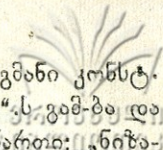 გმანი კონსტ.
“. ს გამ-ბა და
ართი: „ნიზა-